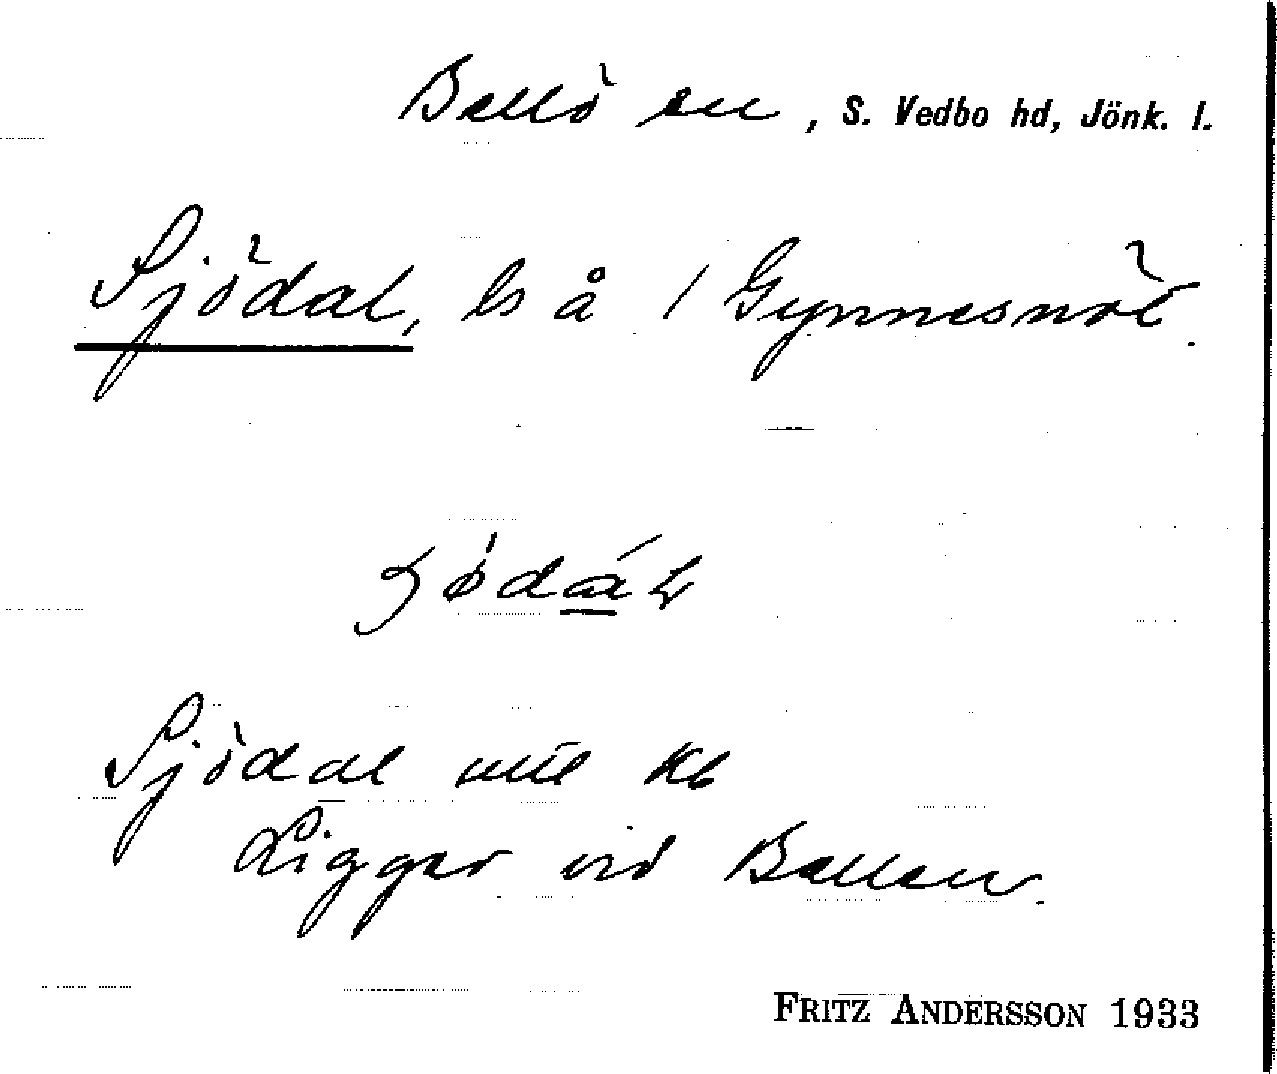 Bellö sn, S. Vedbo hd, Jönk. l.
Sjödal, ls å 1 Gynnesnöl.
Sjödal utt kb
Ligger vid Bellen.
FRITZ ANDERSSON 1933